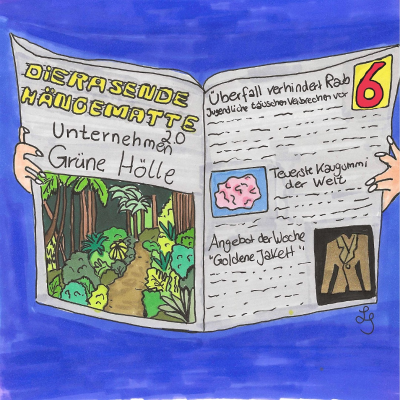 DIE RASENDE
HÄNGEMATTE
2.0
Unternehmen
Grüne Hölle
Überfall verhindert Raub
Jugendliche täuschen Verbrechen vor
6
Teuerste Kaugummi
der Welt
Angebot der Woche
"Goldene Jakett"